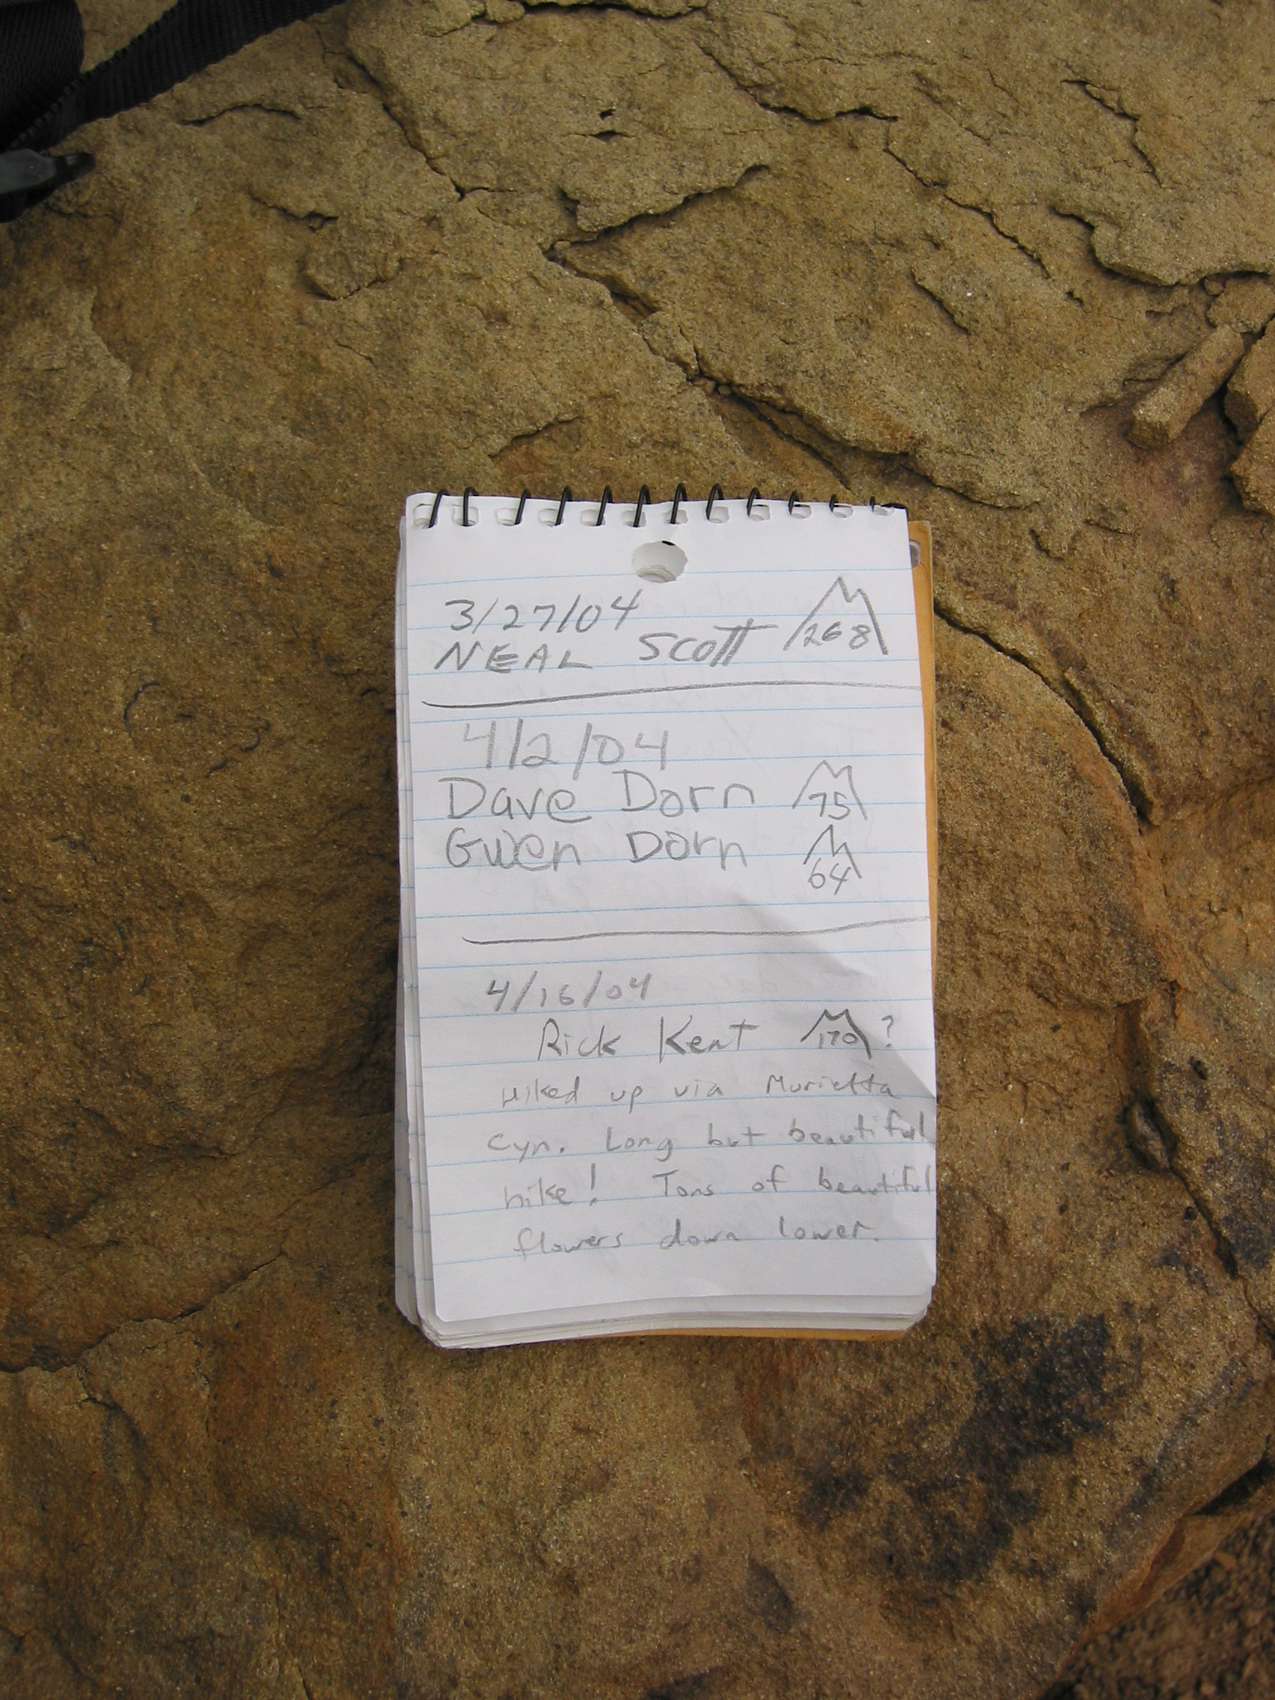 3/27/04
NEAL SCOTT 268
4/2/04
Dave Dorn 75
Gwen Dorn 64
4/16/04
Rick Kent 170 ?
Hiked up via Murietta
Cyn. Long but beautiful
hike! Tons of beautiful
flowers down lower.